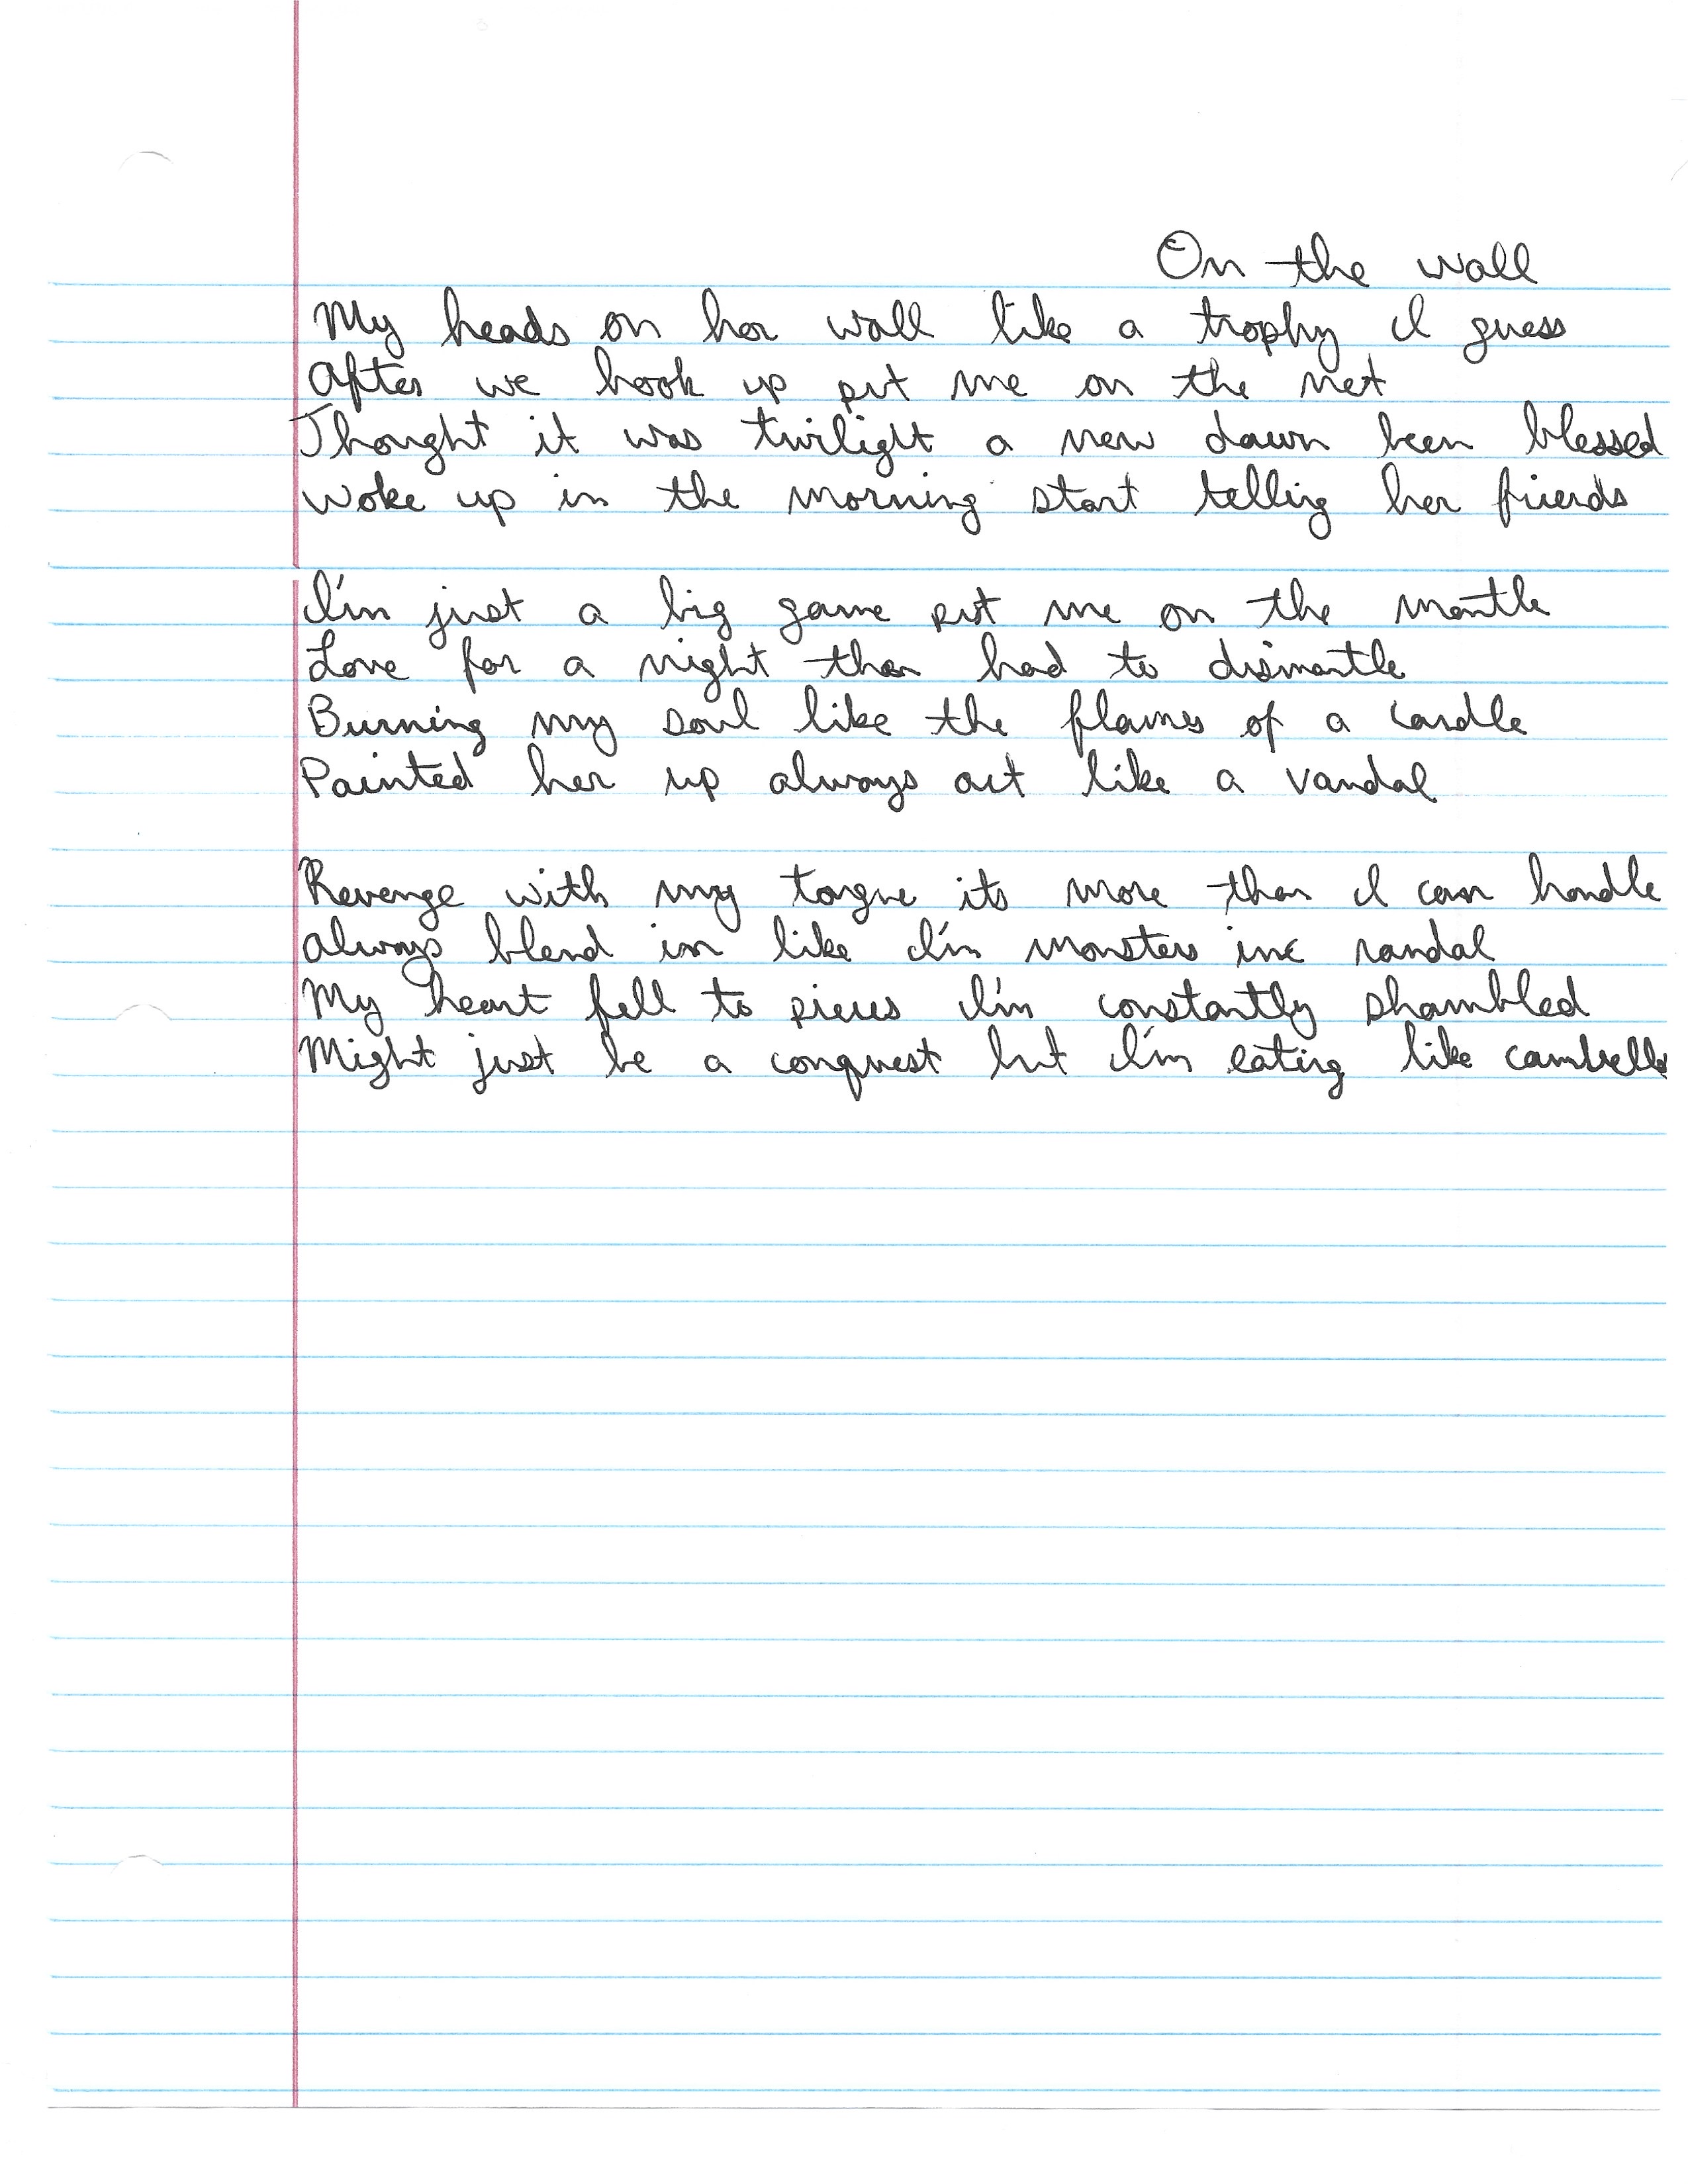 On the wall
My heads on her wall like a trophy I guess
After we hook up put me on the net
Thought it was twilight a new dawn been blessed
Woke up in the morning start telling her friends
I'm just a big game put me on the mantle
Love for a night then had to dismantle
Burning my soul like the flames of a candle
Painted her up always act like a vandal
Revenge with my tongue its more than I can handle
always blend in like I'm monsters inc randal
My heart fell to pieces I'm constantly shambled
Might just be a conquest but I'm eating like cambells